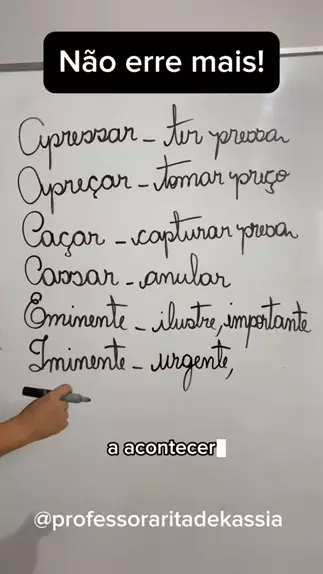 Não erre mais!
Apressar - ter pressa
Apreçar - tomar preço
Caçar - capturar presa
Cassar - anular
Eminente - ilustre, importante
Iminente - urgente,
a acontecer
@professoraritadekassia